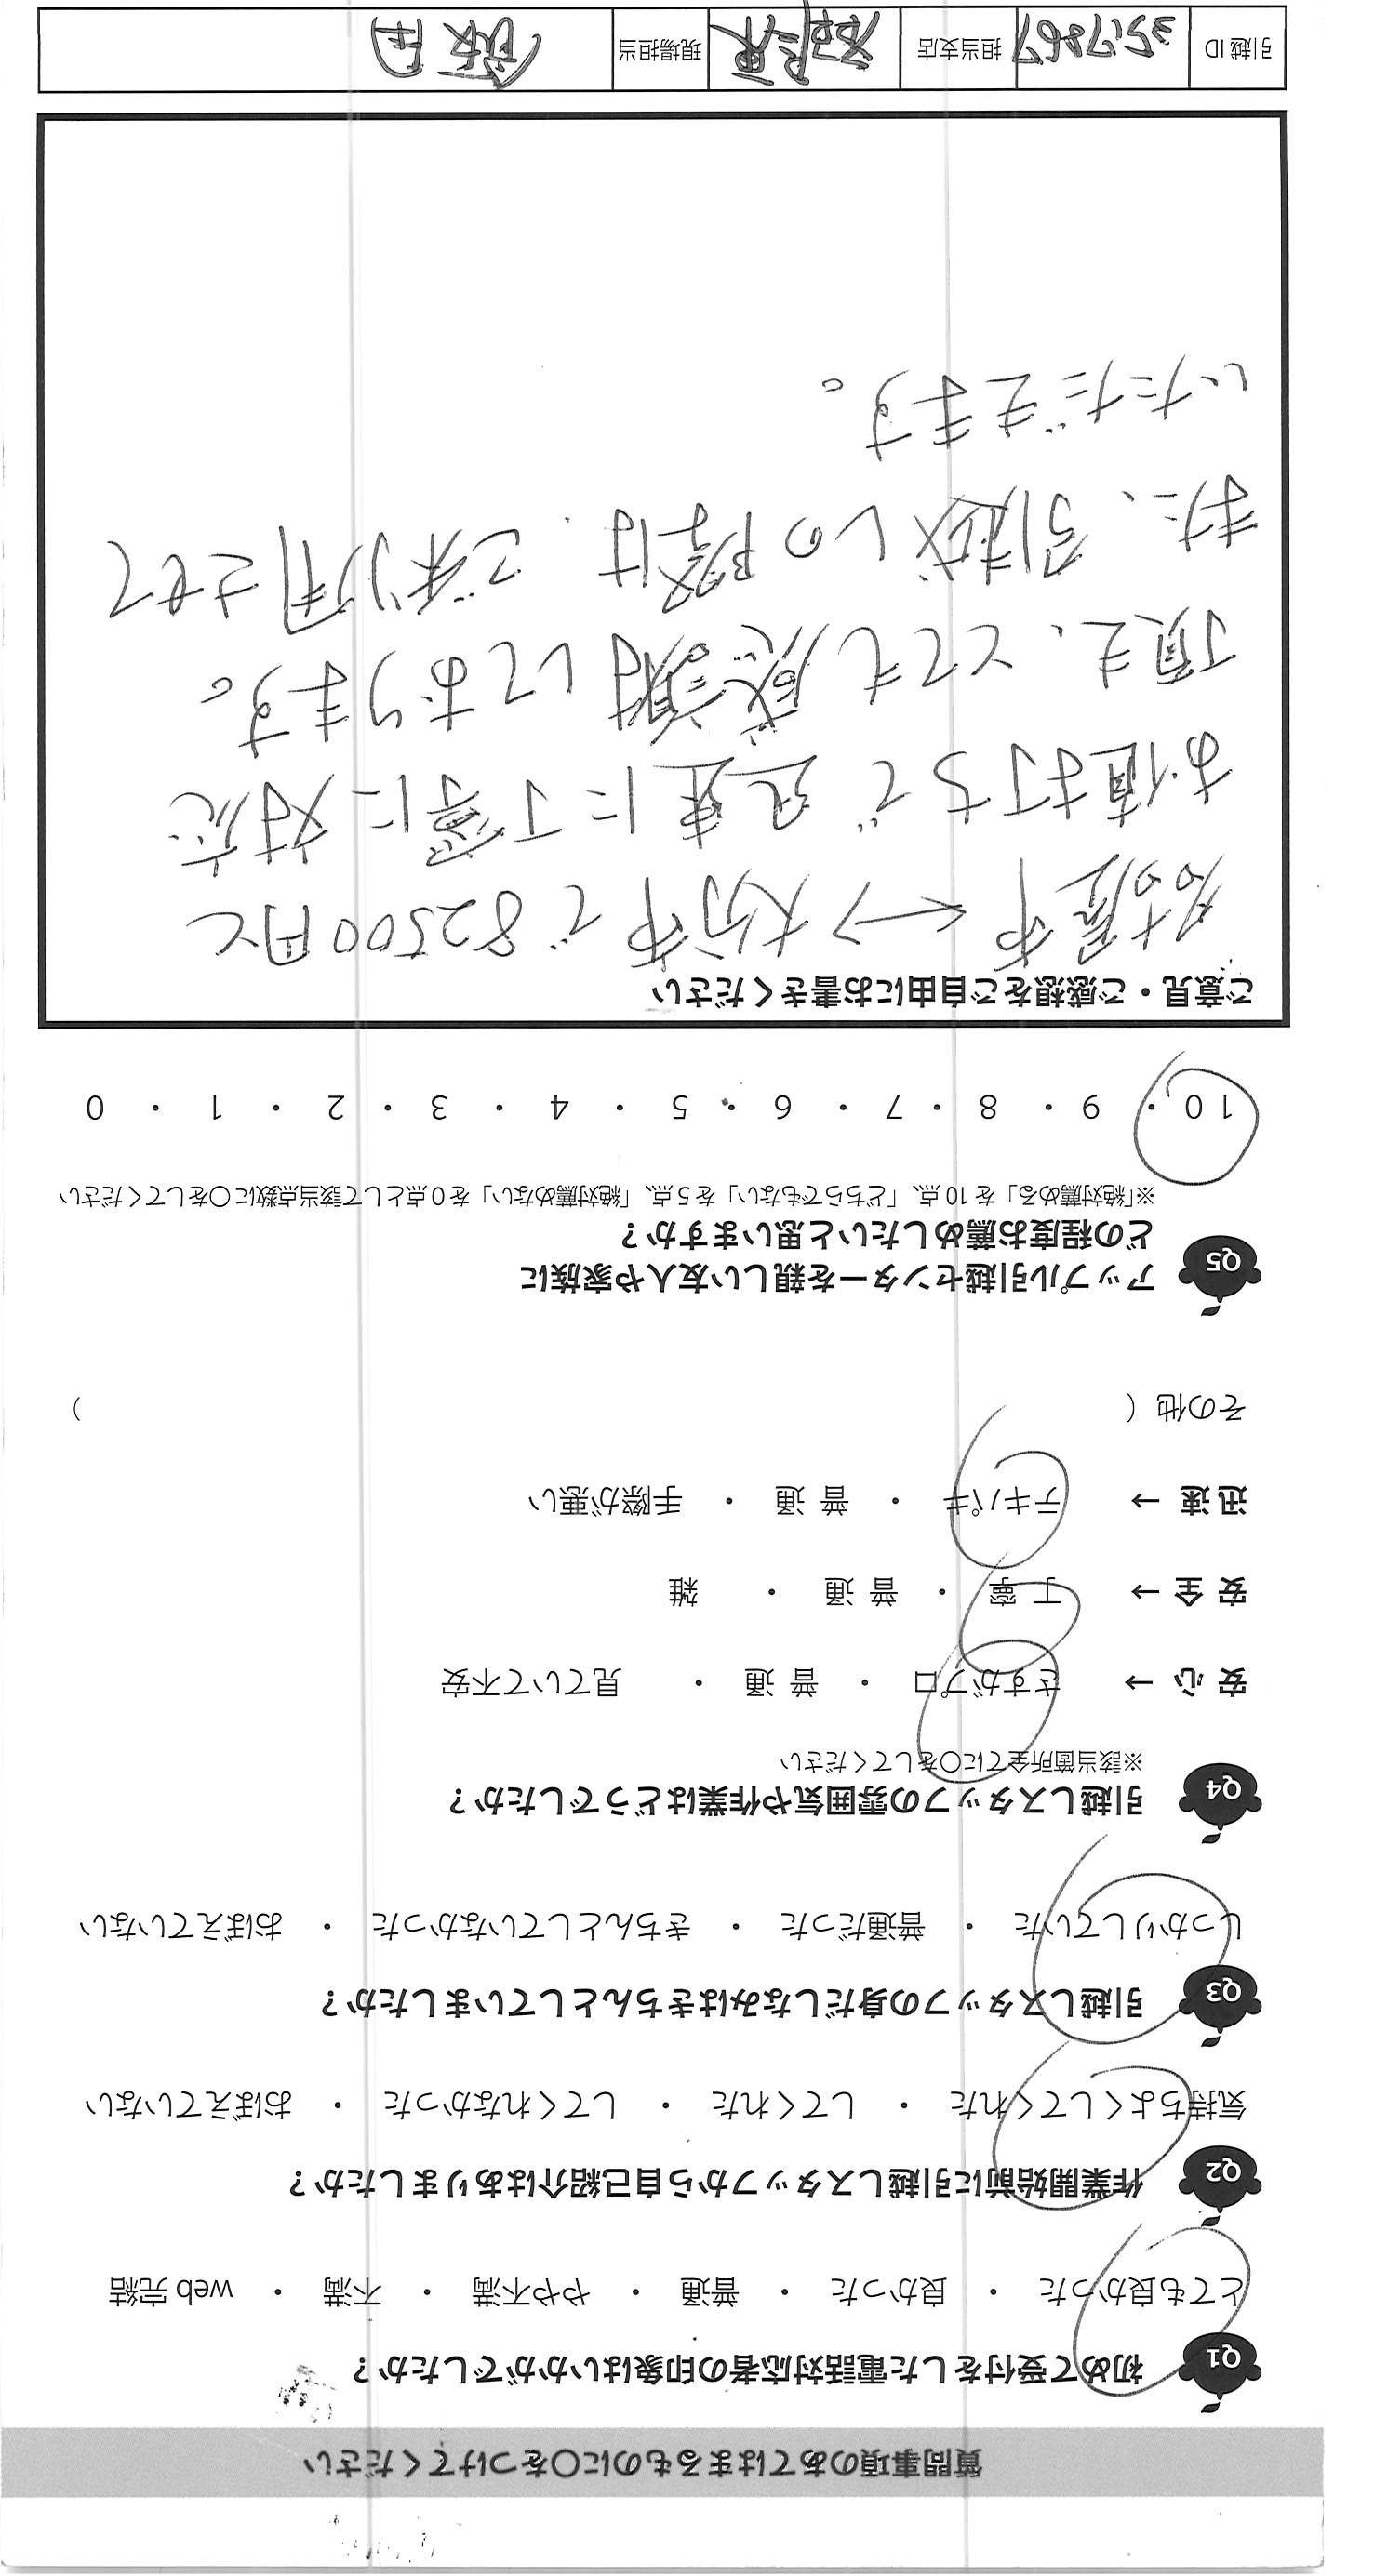 質問事項のあてはまるものに○をつけてください
Q1 初めて受付をした電話対応者の印象はいかがでしたか？
とても良かった ・ 良かった ・ 普通 ・ やや不満 ・ 不満 ・ web 完結
Q2 作業開始前に引越しスタッフから自己紹介はありましたか？
気持ちよくしてくれた ・ してくれた ・ してくれなかった ・ おぼえていない
Q3 引越しスタッフの身だしなみはきちんとしていましたか？
しっかりしていた ・ 普通だった ・ きちんとしていなかった ・ おぼえていない
Q4 引越しスタッフの雰囲気や作業はどうでしたか？
※該当箇所全てに○をしてください
安 心 → さすがプロ ・ 普 通 ・ 見ていて不安
安 全 → 丁 寧 ・ 普 通 ・ 雑
迅 速 → テキパキ ・ 普 通 ・ 手際が悪い
その他（ ）
Q5 アップル引越センターを親しい友人や家族に
どの程度お薦めしたいと思いますか？
※「絶対薦める」を 10 点、「どちらでもない」を 5 点、「絶対薦めない」を 0 点として該当点数に○をしてください
10 ・ 9 ・ 8 ・ 7 ・ 6 ・ 5 ・ 4 ・ 3 ・ 2 ・ 1 ・ 0
ご意見・ご感想をご自由にお書きください
名古屋市 ←→ 大分市で 82500円と
お値打ちで 迅速に丁寧に対応
頂き、とても感謝しております。
また、引越しの際は、ご利用させて
いただきます。
引越 ID 担当支店 現場担当 飯田